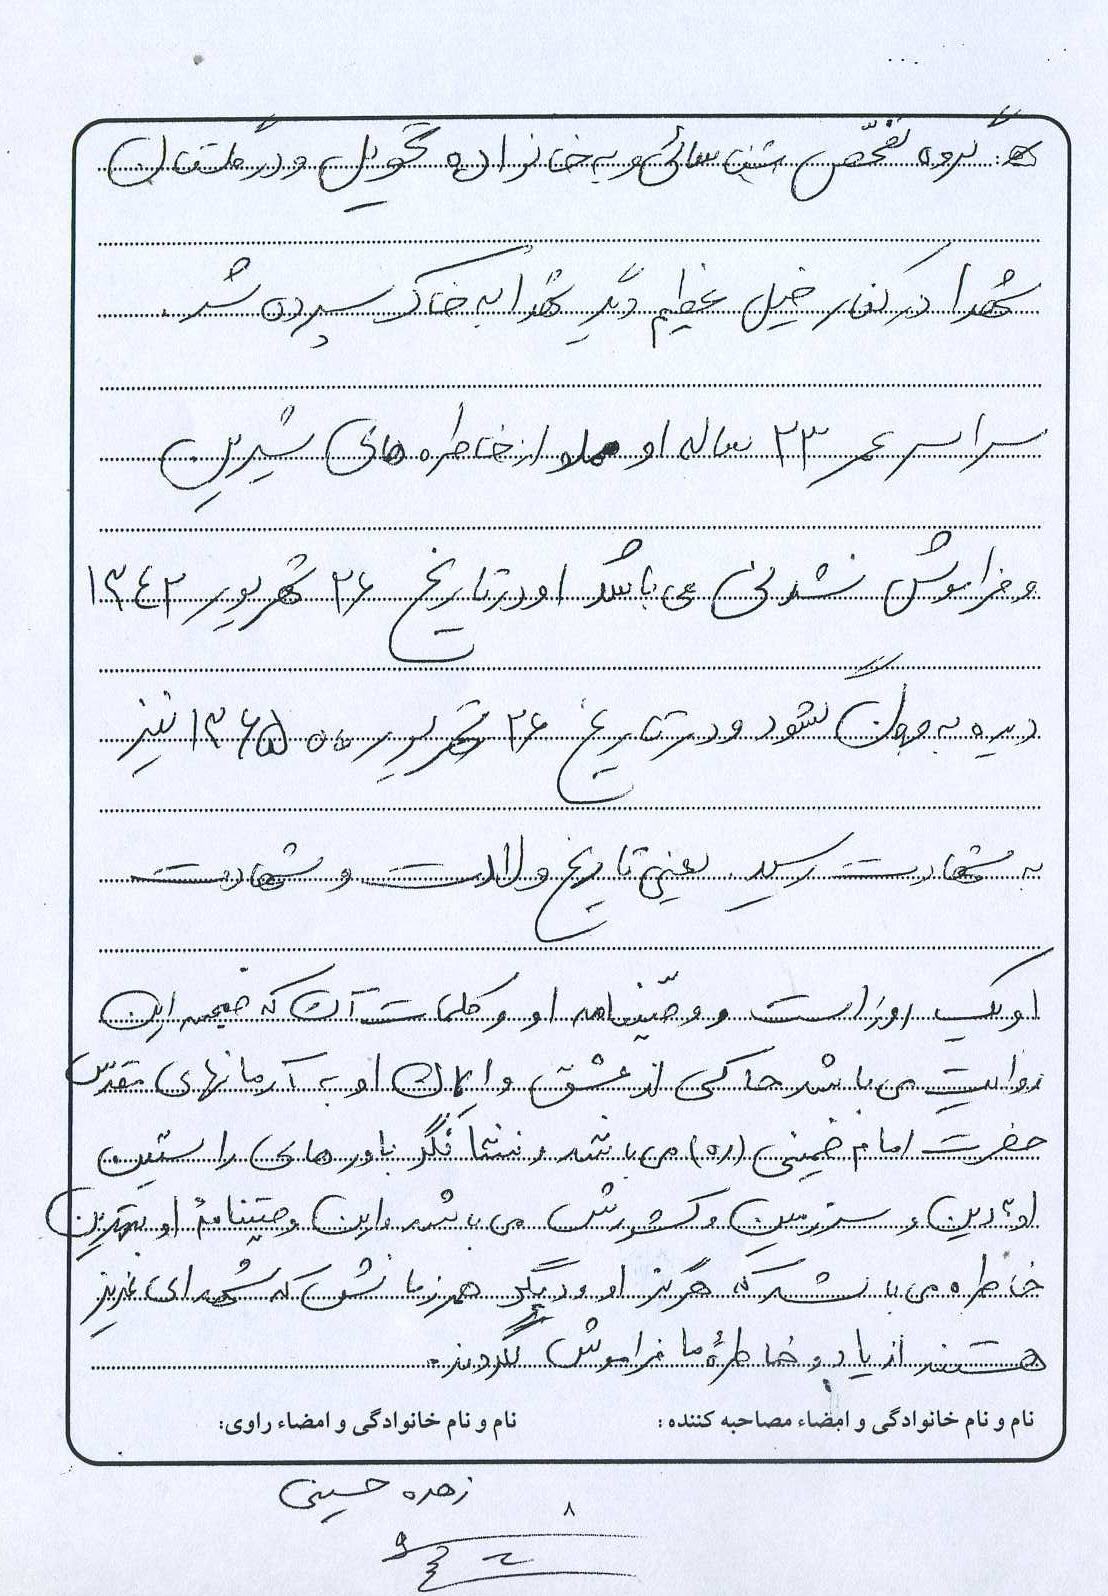 گروه تفحّص شناسائی و به خانواده تحویل و در گلستان
شهدا در کنار خیل عظیم دیگر شهدا به خاک سپرده شد.
سراسر عمر ۲۳ ساله او مملو از خاطره های شیرین
و فراموش نشدنی می باشد او در تاریخ ۲۶ شهریور ۱۳۴۲
دیده به جهان گشود و در تاریخ ۲۶ شهریور ۱۳۶۵ نیز
به شهادت رسید. یعنی تاریخ ولادت و شهادت
او یک روز است و وصیّتنامه او و کلمات آن که ضمیمه این
روایت می باشد حاکی از عشق و ایمان او به آرمانهای مقدّس
حضرت امام خمینی (ره) می باشد و نشانگر باورهای راستین
او به دین و سرزمین و کشورش می باشد و این وصیتنامۀ او بهترین
خاطره می باشد که هرگز او و دیگر همرزمانش که شهدای عزیز
هستند از یاد و خاطرۀ ما فراموش نگردند.
نام و نام خانوادگی و امضاء مصاحبه کننده : نام و نام خانوادگی و امضاء راوی:
زهره حسینی
۸